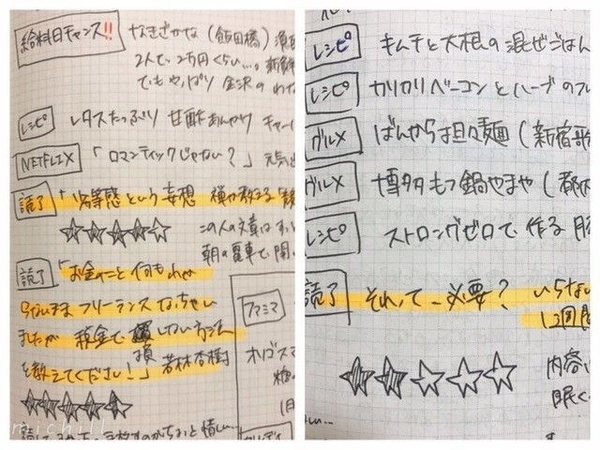 給料日チャンス!!
なきざかな(飯田橋)
2人で、2万円くらい…。
でもやっぱり 金沢の
レシピ
レタスたっぷり 甘酢あんかけ チャー
NETFLIX
「ロマンティックじゃない?」元気
読了
「劣等感という妄想
☆☆☆☆☆
この人の文章は
朝の電車で、
読了
「お金のこと何もわか
らないまま フリーランスになっちゃい
ましたが 税金で損しない方法
を教えてください!」若林杏樹
★★★★★
ファミマ
オリゴス
michill
レシピ
キムチと大根の混ぜごはん
レシピ
カリカリベーコンとハーブの
グルメ
ばんからは担々麺(新宿歌
グルメ
博多もつ鍋やまや(都内
レシピ
ストロングゼロで作る 豚
読了
それって、必要?
いらない
12個
★★☆☆☆
内容
眠く